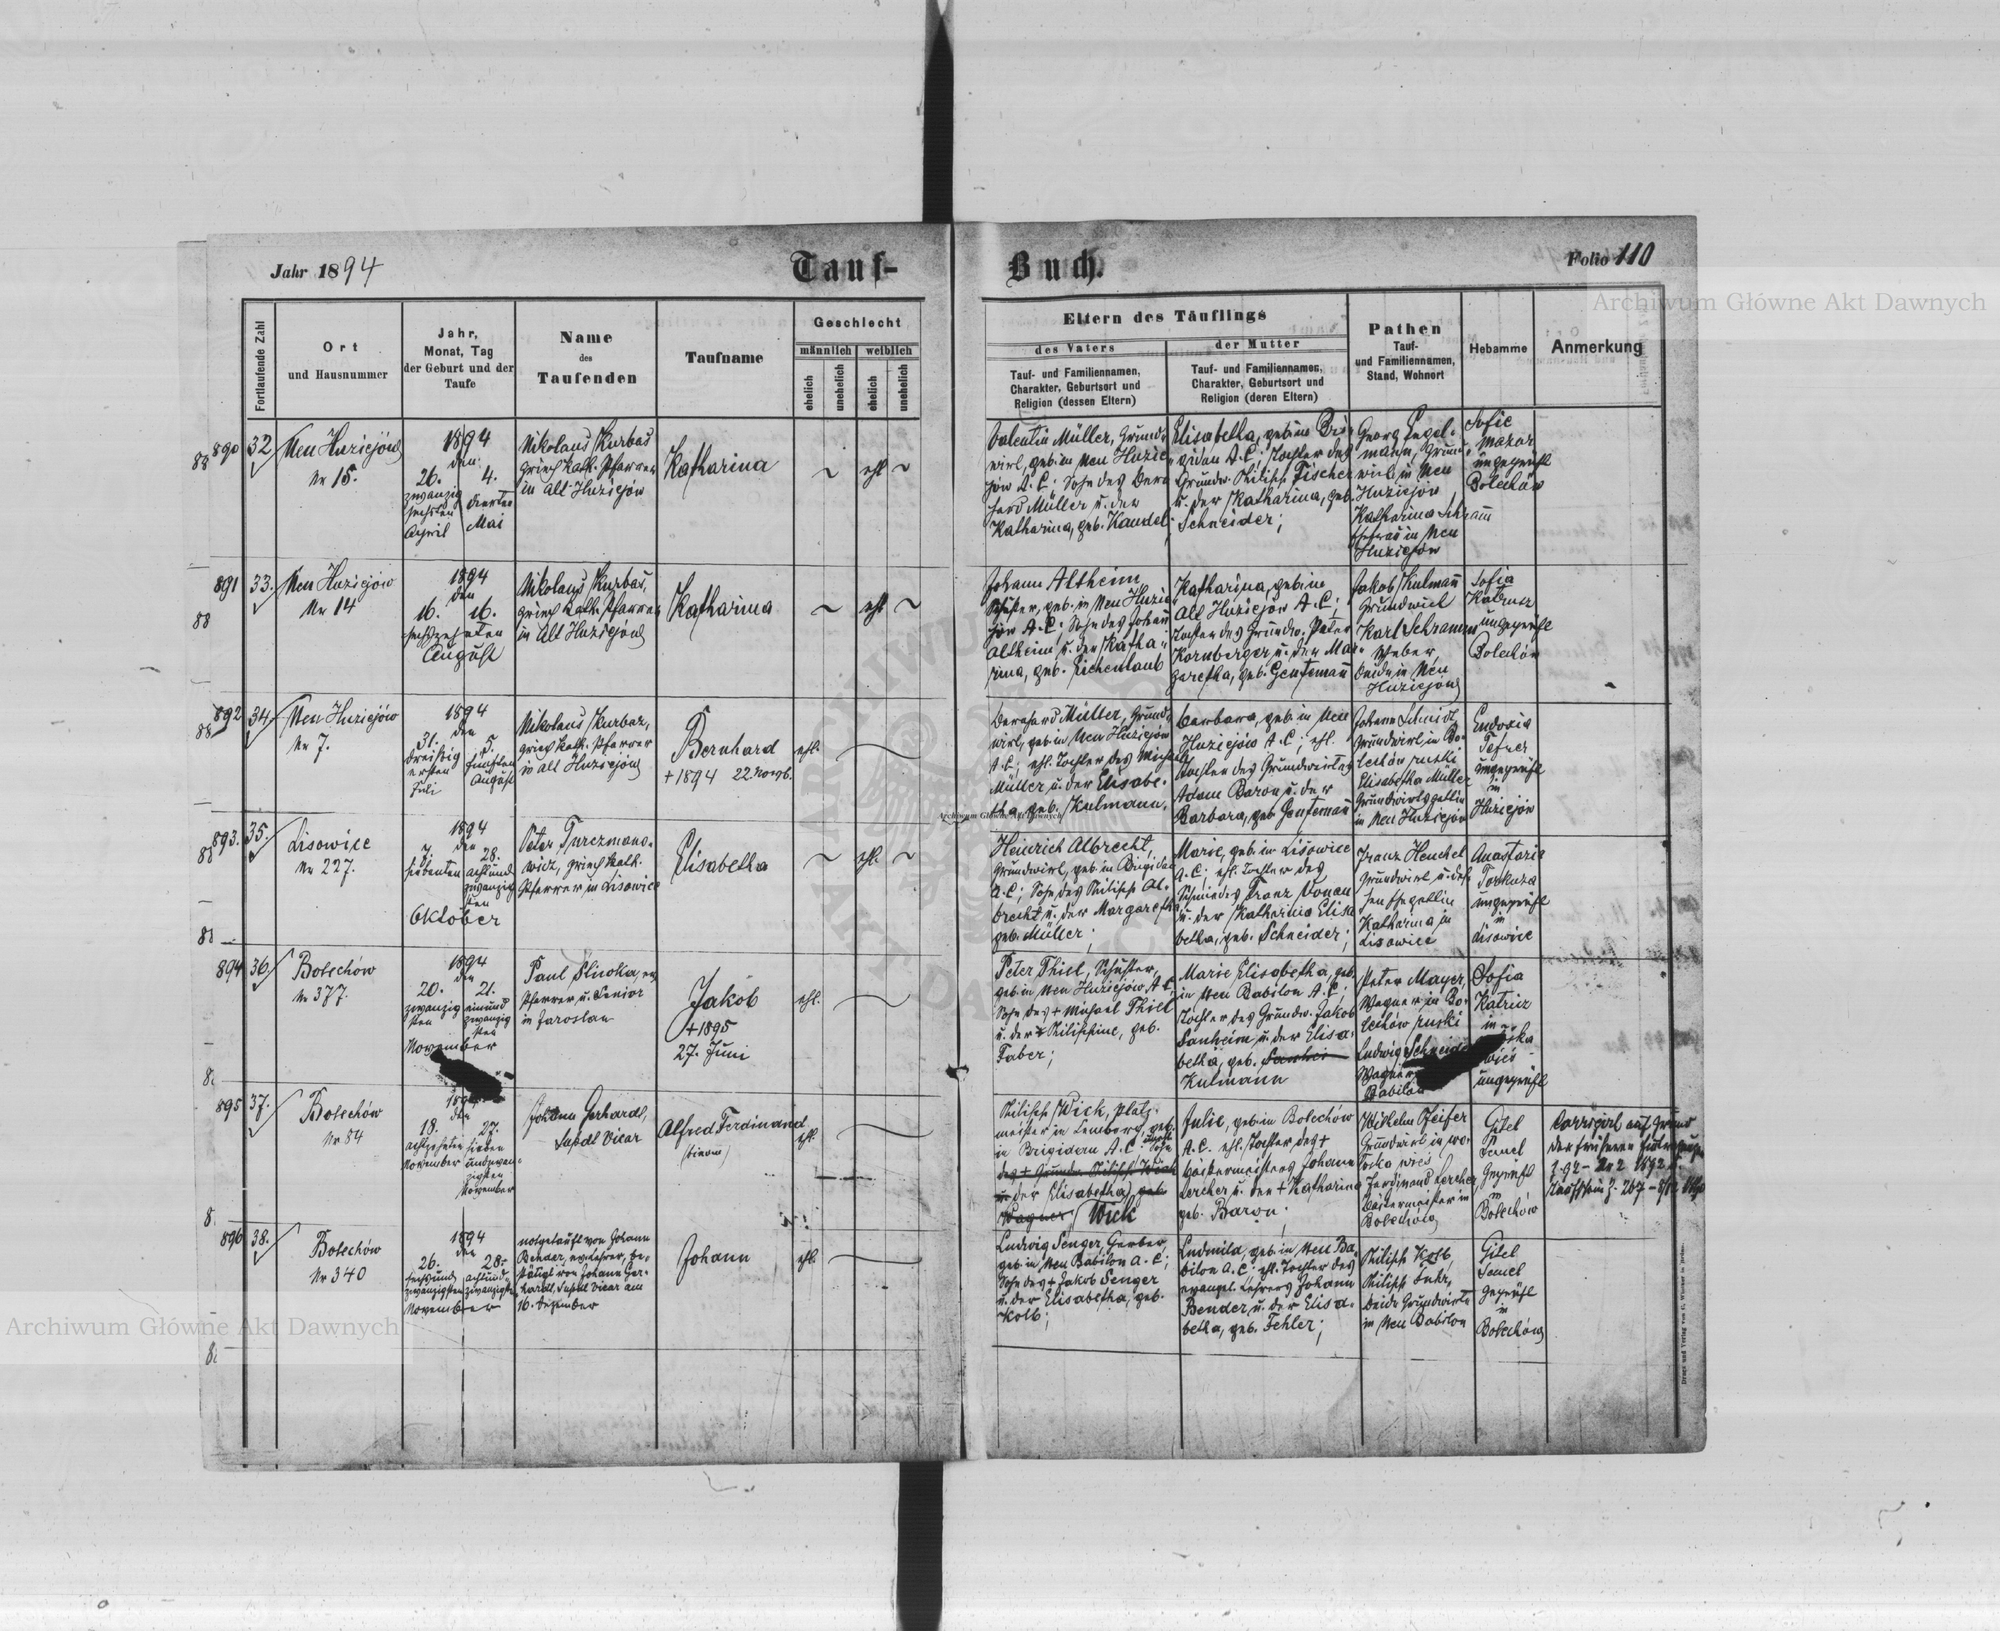 Jahr 1894
Tauf-
Buch.
Folio 110
Archiwum Główne Akt Dawnych
Fortlaufende Zahl
Ort
und Hausnummer
Jahr,
Monat, Tag
der Geburt und der
Taufe
Name
des
Taufenden
Taufname
Geschlecht
männlich
weiblich
ehelich
unehelich
ehelich
unehelich
Eltern des Täuflings
des Vaters
Tauf- und Familiennamen,
Charakter, Geburtsort und
Religion (dessen Eltern)
der Mutter
Tauf- und Familiennamen,
Charakter, Geburtsort und
Religion (deren Eltern)
Pathen
Tauf-
und Familiennamen,
Stand, Wohnort
Hebamme
Anmerkung
890
32
Neu Huziejów
Nr 15.
1894
den
26. 4.
zwanzig
sechsten vierten
April Mai
Nikolaus Kurbas
griech kath. Pfarrer
in Alt-Huziejów
Katharina
ehl
Valentin Müller, Grund-
wirt, geb. in Neu Huzie-
jów A. C. Sohn des Bern
hard Müller u. der
Katharina, geb. Kandel;
Elisabetha, geb. in Bri-
gidau A. C.; Tochter des
Grundw. Philipp Fischer
u. der Katharina, geb.
Schneider;
Georg Engel-
mann, Grund-
wirt in Neu
Huziejów
Katharina Schram
Ehefrau in Neu
Huziejów
Sofie
Mazar
ungeprüft
Bolechów
891
33.
Neu Huziejów
Nr 14
1894
den
16. 16.
sechszehnten
August
Nikolaus Kurbas,
griech kath. Pfarrer
in Alt Huziejów
Katharina
ehl
Johann Altheim
Schuster, geb. in Neu Huzie
jów A. C. Sohn des Johann
Altheim, u. der Katha-
rina, geb. Eichenlaub
Katharina, geb. in
Alt Huziejów A. C.;
Tochter des Grundw. Peter
Kornberger u. der Mar-
garetha, geb. Gentemann
Jakob Kulmann
Grundwirt
Karl Schramm
Weber,
beide in Neu
Huziejów
Sofia
ungeprüft
Bolechów
892
34.
Neu Huziejów
Nr 7.
1894
den
31. 5.
dreißig fünften
ersten August
Juli
Nikolaus Kurbas,
griech kath. Pfarrer
in Alt Huziejów
Bernhard
+ 1894 22. Novb.
ehl.
Bernhard Müller, Grund-
wirt, geb. in Neu Huziejów
A. C.; ehl. Tochter des Michael
Müller u. der Elisabe-
tha, geb. Kulmann.
Barbara, geb. in Neu
Huziejów A. C.; ehl.
Tochter des Grundwirtes
Adam Baron u. der
Barbara, geb. Gentemann
Johann Schmidt
Grundwirt in Bo-
lechów ruski
Elisabetha Müller
Grundwirtsgattin
in Neu Huziejów
Eudoxia
ungeprüft
in
Huziejów
893.
35.
Lisowice
Nr 227.
1894
den
7. 28.
siebenten achtund
zwanzig
sten
Oktober
Peter Turczmano-
wicz, griech kath.
Pfarrer in Lisowice
Elisabetha
ehl.
Heinrich Albrecht,
Grundwirt, geb. in Brigidau
A. C.; Sohn des Philipp Al-
brecht u. der Margaretha
geb. Müller;
Marie, geb. in Lisowice
A. C.; ehl. Tochter des
Schmiedes Franz Vonau
u. der Katharina Elisa
betha, geb. Schneider;
Franz Henchel
Grundwirt u. des-
sen Ehegattin
Katharina in
Lisowice
Anastazie
ungeprüft
in
Lisowice
894
36
Bolechów
Nr 377.
1894
den
20. 21.
zwanzig einund
sten zwanzig
sten
November
Pfarrer u. Senior
in Jaroslau
Jakob
+ 1895
27. Juni
ehl.
Peter Thiel, Schuster,
geb. in Neu Huziejów A C
Sohn des + Michael Thiel
u. der Philippine, geb.
Faber;
Marie Elisabetha, geb.
in Neu Babilon A. C.;
Tochter des Grundw. Jakob
Sanheim u. der Elisa-
betha, geb.
Kulmann
Peter Mayer,
Wagner in Bo-
lechów ruski
Ludwig Schneider
Wagner
Babilon
Sofia
in
ungeprüft
895
37.
Bolechów
Nr 84
1894
den
18. 27.
achtzehnten sieben
November undzwan-
zigsten
November
Johann Gerhardt,
Supdt Vicar
Alfred Ferdinand
ehl.
Philipp Wick, Platz-
meister in Lemberg, geb.
in Brigidau A. C.
des + Grundw. Philipp Wick
u. der Elisabetha, geb.
Wagner Wick
Julie, geb. in Bolechów
A. C. ehl. Tochter des +
Bäckermeisters Johann
Lercher u. der + Katharina
geb. Baron;
Wilhelm Pfeifer
Grundwirt in
Ferdinand Lercher,
Bäckermeister in
Bolechów
Gitel
Semel
geprüft
in
Bolechów
Corrigirt auf Grund
der früheren
896
38.
Bolechów
Nr 340
1894
den
26. 28.
sechsund achtund-
zwanzigsten zwanzigsten
November
notgetauft von Johann
Bender, ev. Lehrer, be-
stätigt von Johann Ger-
hardt, Supdt Vicar am
16. Dezember
Johann
ehl.
Ludwig Senger, Gerber,
geb. in Neu Babilon A. C.;
Sohn des + Jakob Senger
u. der Elisabetha, geb.
Kolb;
Ludmila, geb. in Neu Ba
bilon A. C. ehl. Tochter des
evangel. Lehrers Johann
Bender u. der Elisa-
betha, geb. Fehler;
Philipp Kolb,
Philipp Fuhr,
beide Grundwirte
in Neu Babilon
Gitel
Semel
geprüft
in
Bolechów
Archiwum Główne Akt Dawnych
Archiwum Główne Akt Dawnych